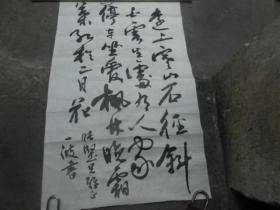 遠上寒山石徑斜
白雲生處有人家
停車坐愛楓林晚霜
葉紅於二月花
兄雅正
一波書